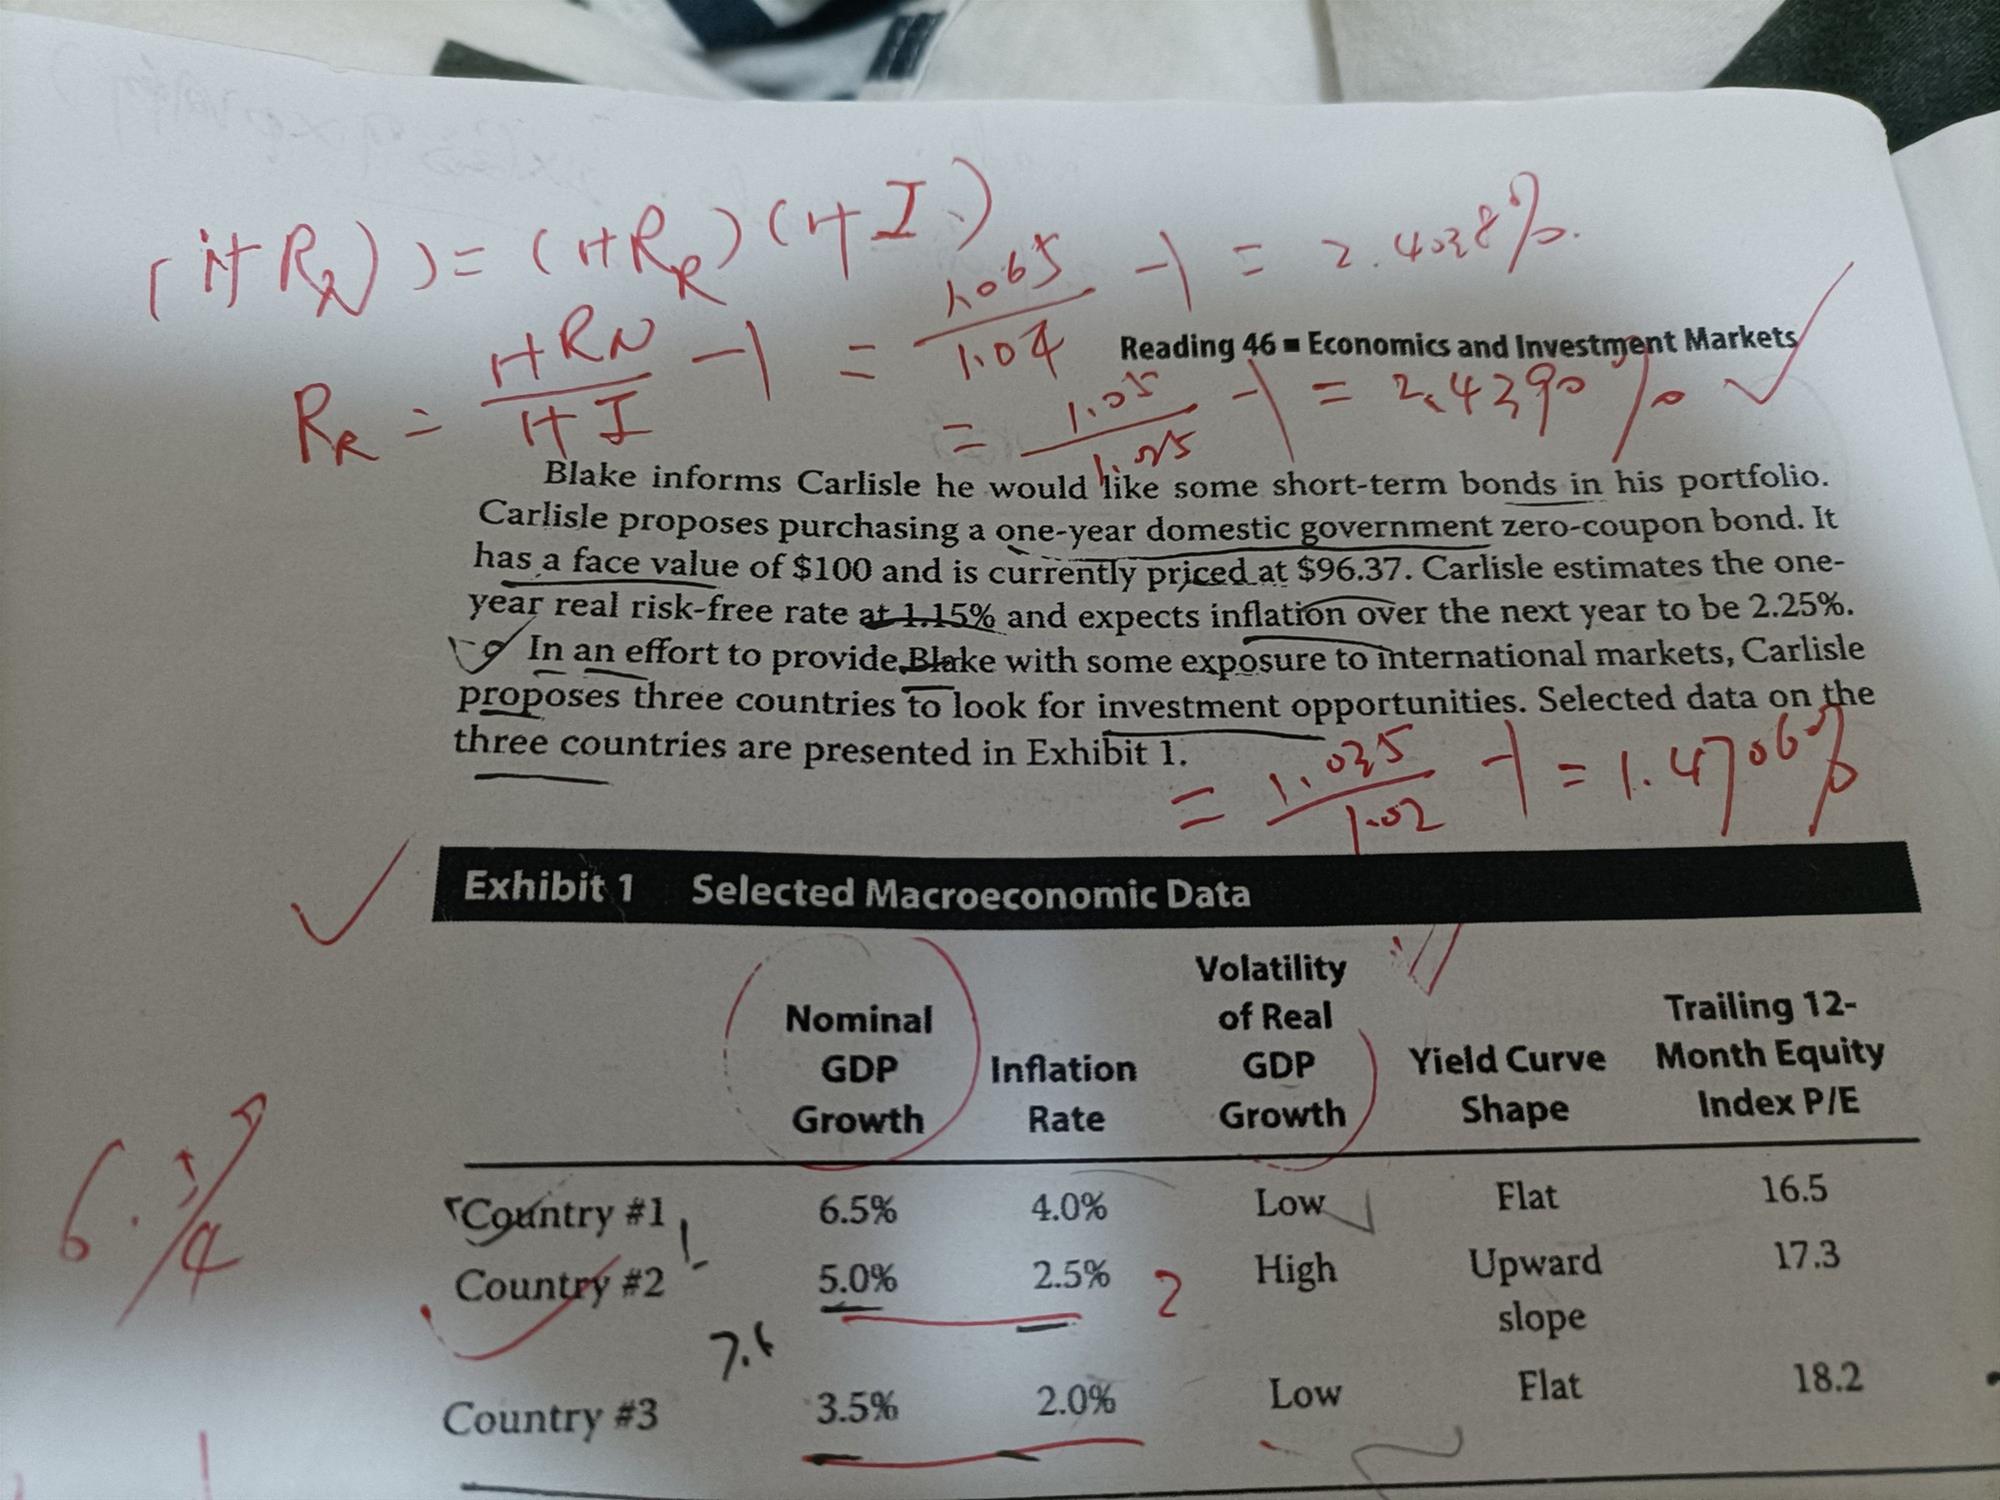 (1+RN) = (1+RR)(1+I)
RR = 1+RN / 1+I - 1 = 1.065 / 1.04 - 1 = 2.4038%.
Reading 46 ■ Economics and Investment Markets
= 1.05 / 1.025 - 1 = 2.4390%
Blake informs Carlisle he would like some short-term bonds in his portfolio.
Carlisle proposes purchasing a one-year domestic government zero-coupon bond. It
has a face value of $100 and is currently priced at $96.37. Carlisle estimates the one-
year real risk-free rate at 1.15% and expects inflation over the next year to be 2.25%.
In an effort to provide Blake with some exposure to international markets, Carlisle
proposes three countries to look for investment opportunities. Selected data on the
three countries are presented in Exhibit 1.
= 1.035 / 1.02 - 1 = 1.4706%
Exhibit 1 Selected Macroeconomic Data
Nominal GDP Growth
Inflation Rate
Volatility of Real GDP Growth
Yield Curve Shape
Trailing 12-Month Equity Index P/E
Country #1 6.5% 4.0% Low Flat 16.5
Country #2 5.0% 2.5% 2 High Upward slope 17.3
Country #3 3.5% 2.0% Low Flat 18.2